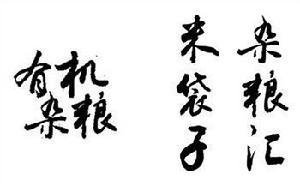 有机
杂粮
杂粮汇
米袋子